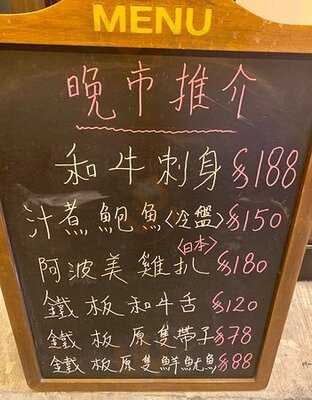 MENU
晚市推介
和牛刺身 $188
汁煮鮑魚〈冷盤〉$150
〈日本〉
阿波美雞扎 $180
鐵板和牛舌 $120
鐵板原隻帶子 $78
鐵板原隻鮮魷魚 $88